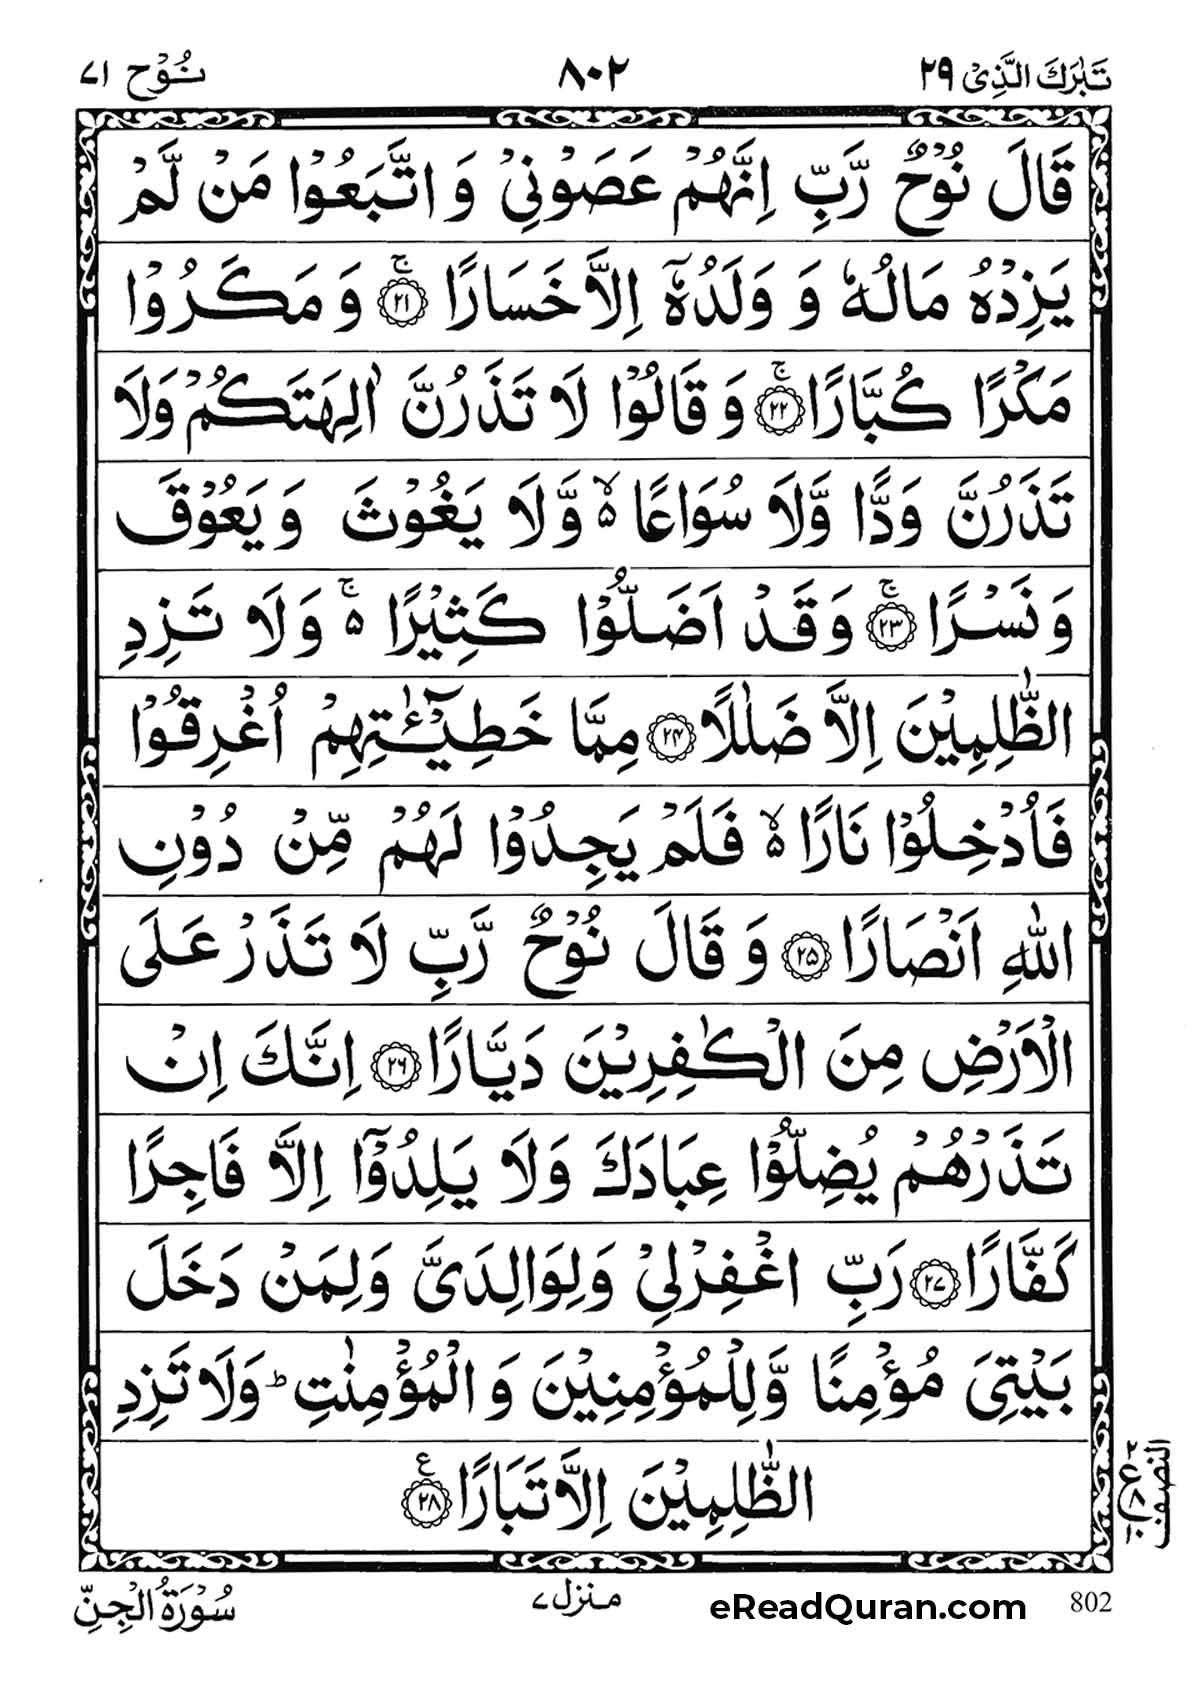 تَبٰرَكَ الَّذِیْ ٢٩
٨٠٢
نُوْح ٧١
قَالَ نُوْحٌ رَّبِّ اِنَّهُمْ عَصَوْنِیْ وَ اتَّبَعُوْا مَنْ لَّمْ
یَزِدْهُ مَالُهٗ وَ وَلَدُهٗۤ اِلَّا خَسَارًا ۚ﴿٢١﴾ وَ مَكَرُوْا
مَكْرًا كُبَّارًا ۚ﴿٢٢﴾ وَ قَالُوْا لَا تَذَرُنَّ اٰلِهَتَكُمْ وَلَا
تَذَرُنَّ وَدًّا وَّلَا سُوَاعًا ۙ۵ وَّلَا یَغُوْثَ وَ یَعُوْقَ
وَ نَسْرًا ۚ﴿٢٣﴾ وَ قَدْ اَضَلُّوْا كَثِیْرًا ۚ۵ وَلَا تَزِدِ
الظّٰلِمِیْنَ اِلَّا ضَلٰلًا ﴿٢٤﴾ مِمَّا خَطِیْٓـٰٔتِهِمْ اُغْرِقُوْا
فَاُدْخِلُوْا نَارًا ۙ۵ فَلَمْ یَجِدُوْا لَهُمْ مِّنْ دُوْنِ
اللهِ اَنْصَارًا ﴿٢٥﴾ وَ قَالَ نُوْحٌ رَّبِّ لَا تَذَرْ عَلَی
الْاَرْضِ مِنَ الْكٰفِرِیْنَ دَیَّارًا ﴿٢٦﴾ اِنَّكَ اِنْ
تَذَرْهُمْ یُضِلُّوْا عِبَادَكَ وَلَا یَلِدُوْۤا اِلَّا فَاجِرًا
كَفَّارًا ﴿٢٧﴾ رَبِّ اغْفِرْلِیْ وَلِوَالِدَیَّ وَلِمَنْ دَخَلَ
بَیْتِیَ مُؤْمِنًا وَّلِلْمُؤْمِنِیْنَ وَ الْمُؤْمِنٰتِ ؕ وَلَا تَزِدِ
الظّٰلِمِیْنَ اِلَّا تَبَارًا ﴿٢٨﴾ ع
النصف
سُوْرَةُ الْجِنِّ
منزل ٧
eReadQuran.com
802